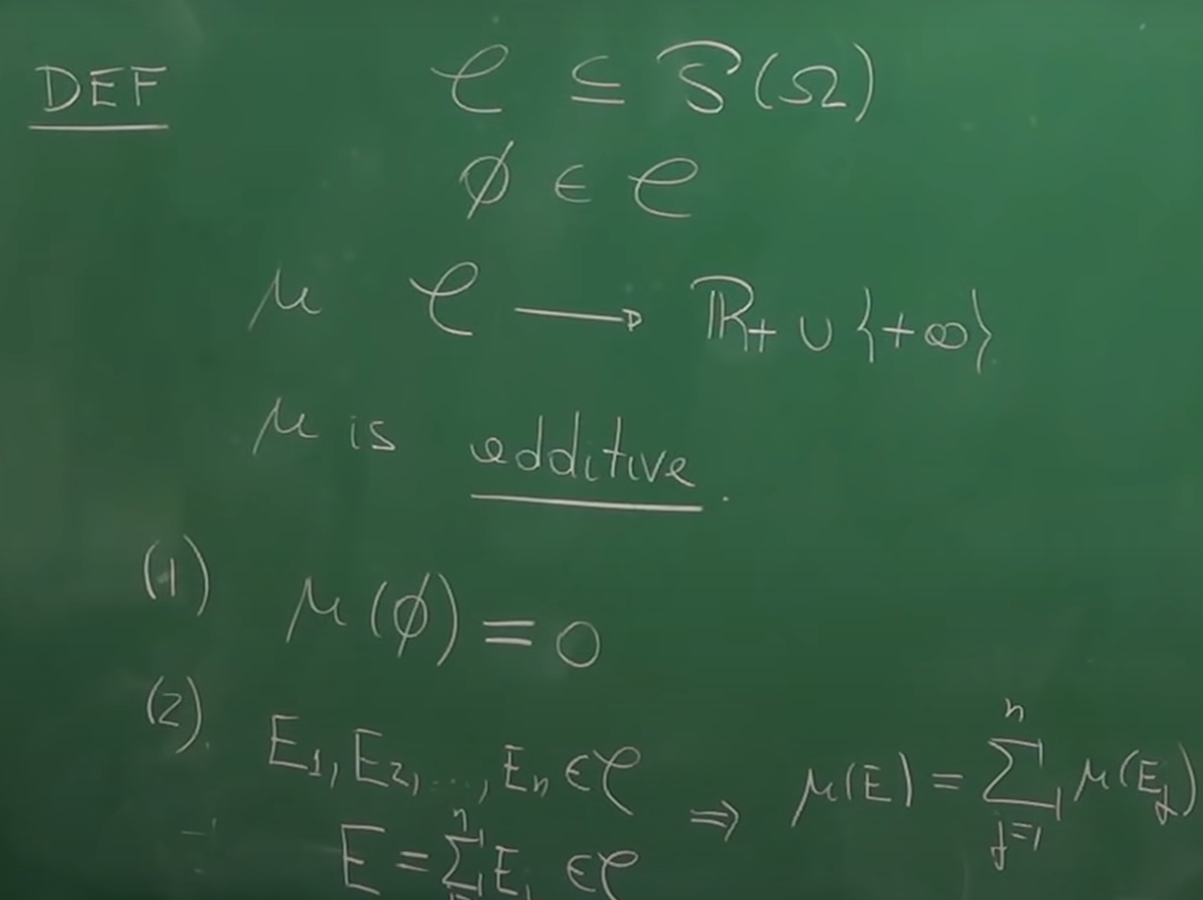 DEF 𝒞 ⊆ 𝒫(Ω)
∅ ∈ 𝒞
μ 𝒞 → ℝ₊ ∪ {+∞}
μ is additive.
(1) μ(∅) = 0
(2). E₁, E₂, ..., Eₙ ∈ 𝒞 ⇒ μ(E) = ∑ⁿⱼ₌₁ μ(Eⱼ)
E = ∑ⁿ Eⱼ ∈ 𝒞